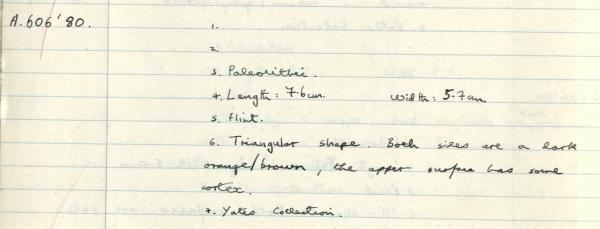 A.606'80.
1.
2.
3. Paleolithic.
4. Length: 7.6cm. Width: 5.7cm.
5. Flint.
6. Triangular shape. Both sides are a dark
orange/brown, the upper surface has some
cortex.
7. Yates Collection.